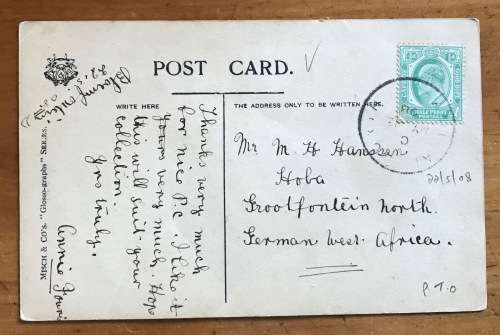 POST CARD.
WRITE HERE
THE ADDRESS ONLY TO BE WRITTEN HERE.
MISCH & CO'S. "Glosso-graphs" SERIES.
HALF PENNY
22/5
Thanks very much
for nice P.C. I like it
yours very much. Hop
this will suit your
collection.
Yrs truly.
Annie
Mr M. H Hanssen
Hoba
Grootfontein north.
German West. Africa.
22/5/08
P T.O